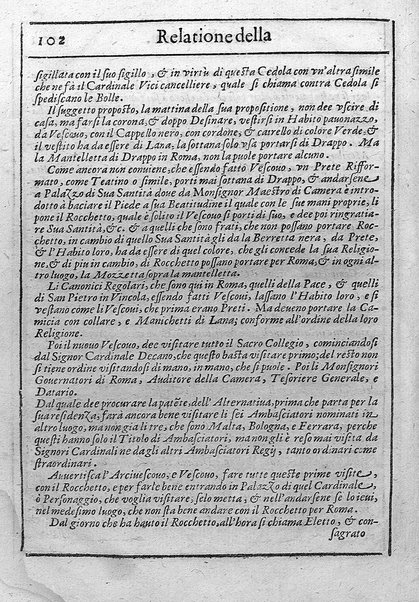 102 Relatione della
sigillata con il suo sigillo, & in virtù di questa Cedola con vn'altra simile
che ne fà il Cardinale Vici cancelliere, quale si chiama contra Cedola si
spediscano le Bolle.
Il suggetto proposto, la mattina della sua propositione, non dee vscire di
casa, ma farsi la corona, & doppo Desinare, vestirsi in Habito pauonazzo,
da Vescouo, con il Cappello nero, con cordone, & catrello di colore Verde, &
il vestito ha da essere di Lana, la sottana solo vsa portarsi di Drappo. Ma
la Mantelletta di Drappo in Roma, non la puole portare alcuno.
Come ancora non conuiene, che essendo fatto Vescouo, vn Prete Rifformato,
mato, come Teatino o simile, porti mai sottana di Drappo, & andarsene
a Palazzo di Sua Santità doue da Monsignor Maestro di Camera è introdotto
dotto à baciare il Piede a sua Beatitudine il quale con le sue mani proprie, li
pone il Rocchetto, quale è solito il Vescouo si porti di suo, e dee poi ringratiare
re Sua Santità, &c. & a quelli che sono frati, che non possano portare Rocchetto,
chetto, in cambio di quello Sua Santità gli da la Berretta nera, da Prete,
& l'Habito loro, ha da essere di quel colore, che gli concede la sua Religione,
ne, & di piu in cambio, di Rocchetto possano portare per Roma, & in ogni altro
tro luogo, la Mozzetta sopra la mantelletta.
Li Canonici Regolari, che sono qui in Roma, quelli della Pace, & quelli
di San Pietro in Vincola, essendo fatti Vescoui, lassano l'Habito loro, e si
vestano come li Vescoui, che prima erano Preti. Ma deueno portare la Camicia
micia con collare, e Manichetti di Lana; conforme all'ordine della loro
Religione.
Poi il nuouo Vescouo, dee visitare tutto il Sacro Collegio, cominciandosi
dal Signor Cardinale Decano, che questo basta visitare primo; del resto non
si tiene ordine visitandosi di mano, in mano, che si puole. Poi li Monsignori
Gouernatori di Roma, Auditore della Camera, Tesoriere Generale, e
Datario.
Dal quale dee procurare la patẽte, dell'Alternatiua, prima che parta per la
sua residenza, farà ancora bene visitare li sei Ambasciatori nominati in
altro luogo, ma non gia li tre, che sono Malta, Bologna, e Ferrara, perche
questi hanno solo il Titolo di Ambasciatori, ma non gli è reso mai visita da
Signori Cardinali ne dagli altri Ambasciatori Regij, tanto ordinari come
straordinari.
Auuertisca l'Arciuescouo, e Vescouo, fare tutte queste prime visite,
con il Rocchetto, e per farle bene entrando in Palazzo di quel Cardinale,
ò Personaggio, che voglia visitare, selo metta, & nell'andarsene se lo ieui,
nel medesimo luogo, che non sta bene andare con il Rocchetto per Roma.
Dal giorno che ha hauto il Rocchetto, all'hora si chiama Eletto, & con-
sagrato